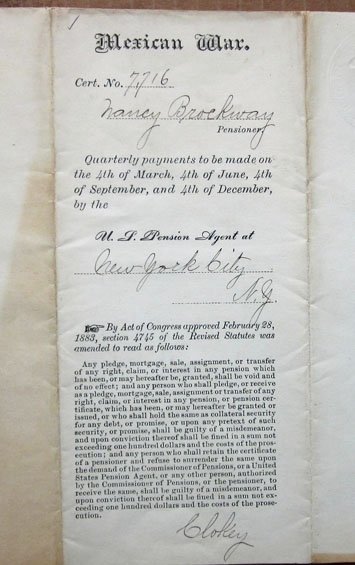 Mexican War.
Cert. No. 7,716
Nancy Brockway
Pensioner.
Quarterly payments to be made on
the 4th of March, 4th of June, 4th
of September, and 4th of December,
by the
U. S. Pension Agent at
New York City
N.Y.
By Act of Congress approved February 28,
1883, section 4745 of the Revised Statutes was
amended to read as follows:
Any pledge, mortgage, sale, assignment, or transfer
of any right, claim, or interest in any pension which
has been, or may hereafter be, granted, shall be void and
of no effect; and any person who shall pledge, or receive
as a pledge, mortgage, sale, assignment or transfer of any
right, claim, or interest in any pension, or pension cer-
tificate, which has been, or may hereafter be granted or
issued, or who shall hold the same as collateral security
for any debt, or promise, or upon any pretext of such
security, or promise, shall be guilty of a misdemeanor,
and upon conviction thereof shall be fined in a sum not
exceeding one hundred dollars and the costs of the prose-
cution; and any person who shall retain the certificate
of a pensioner and refuse to surrender the same upon
the demand of the Commissioner of Pensions, or a United
States Pension Agent, or any other person, authorized
by the Commissioner of Pensions, or the pensioner, to
receive the same, shall be guilty of a misdemeanor, and
upon conviction thereof shall be fined in a sum not ex-
ceeding one hundred dollars and the costs of the prose-
cution.